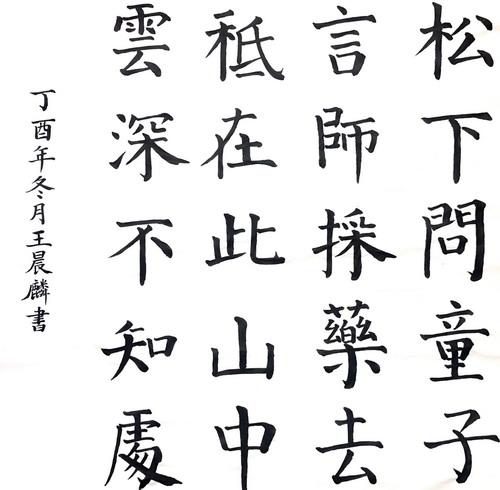 松下問童子
言師採藥去
秪在此山中
雲深不知處
丁酉年冬月王晨麟書